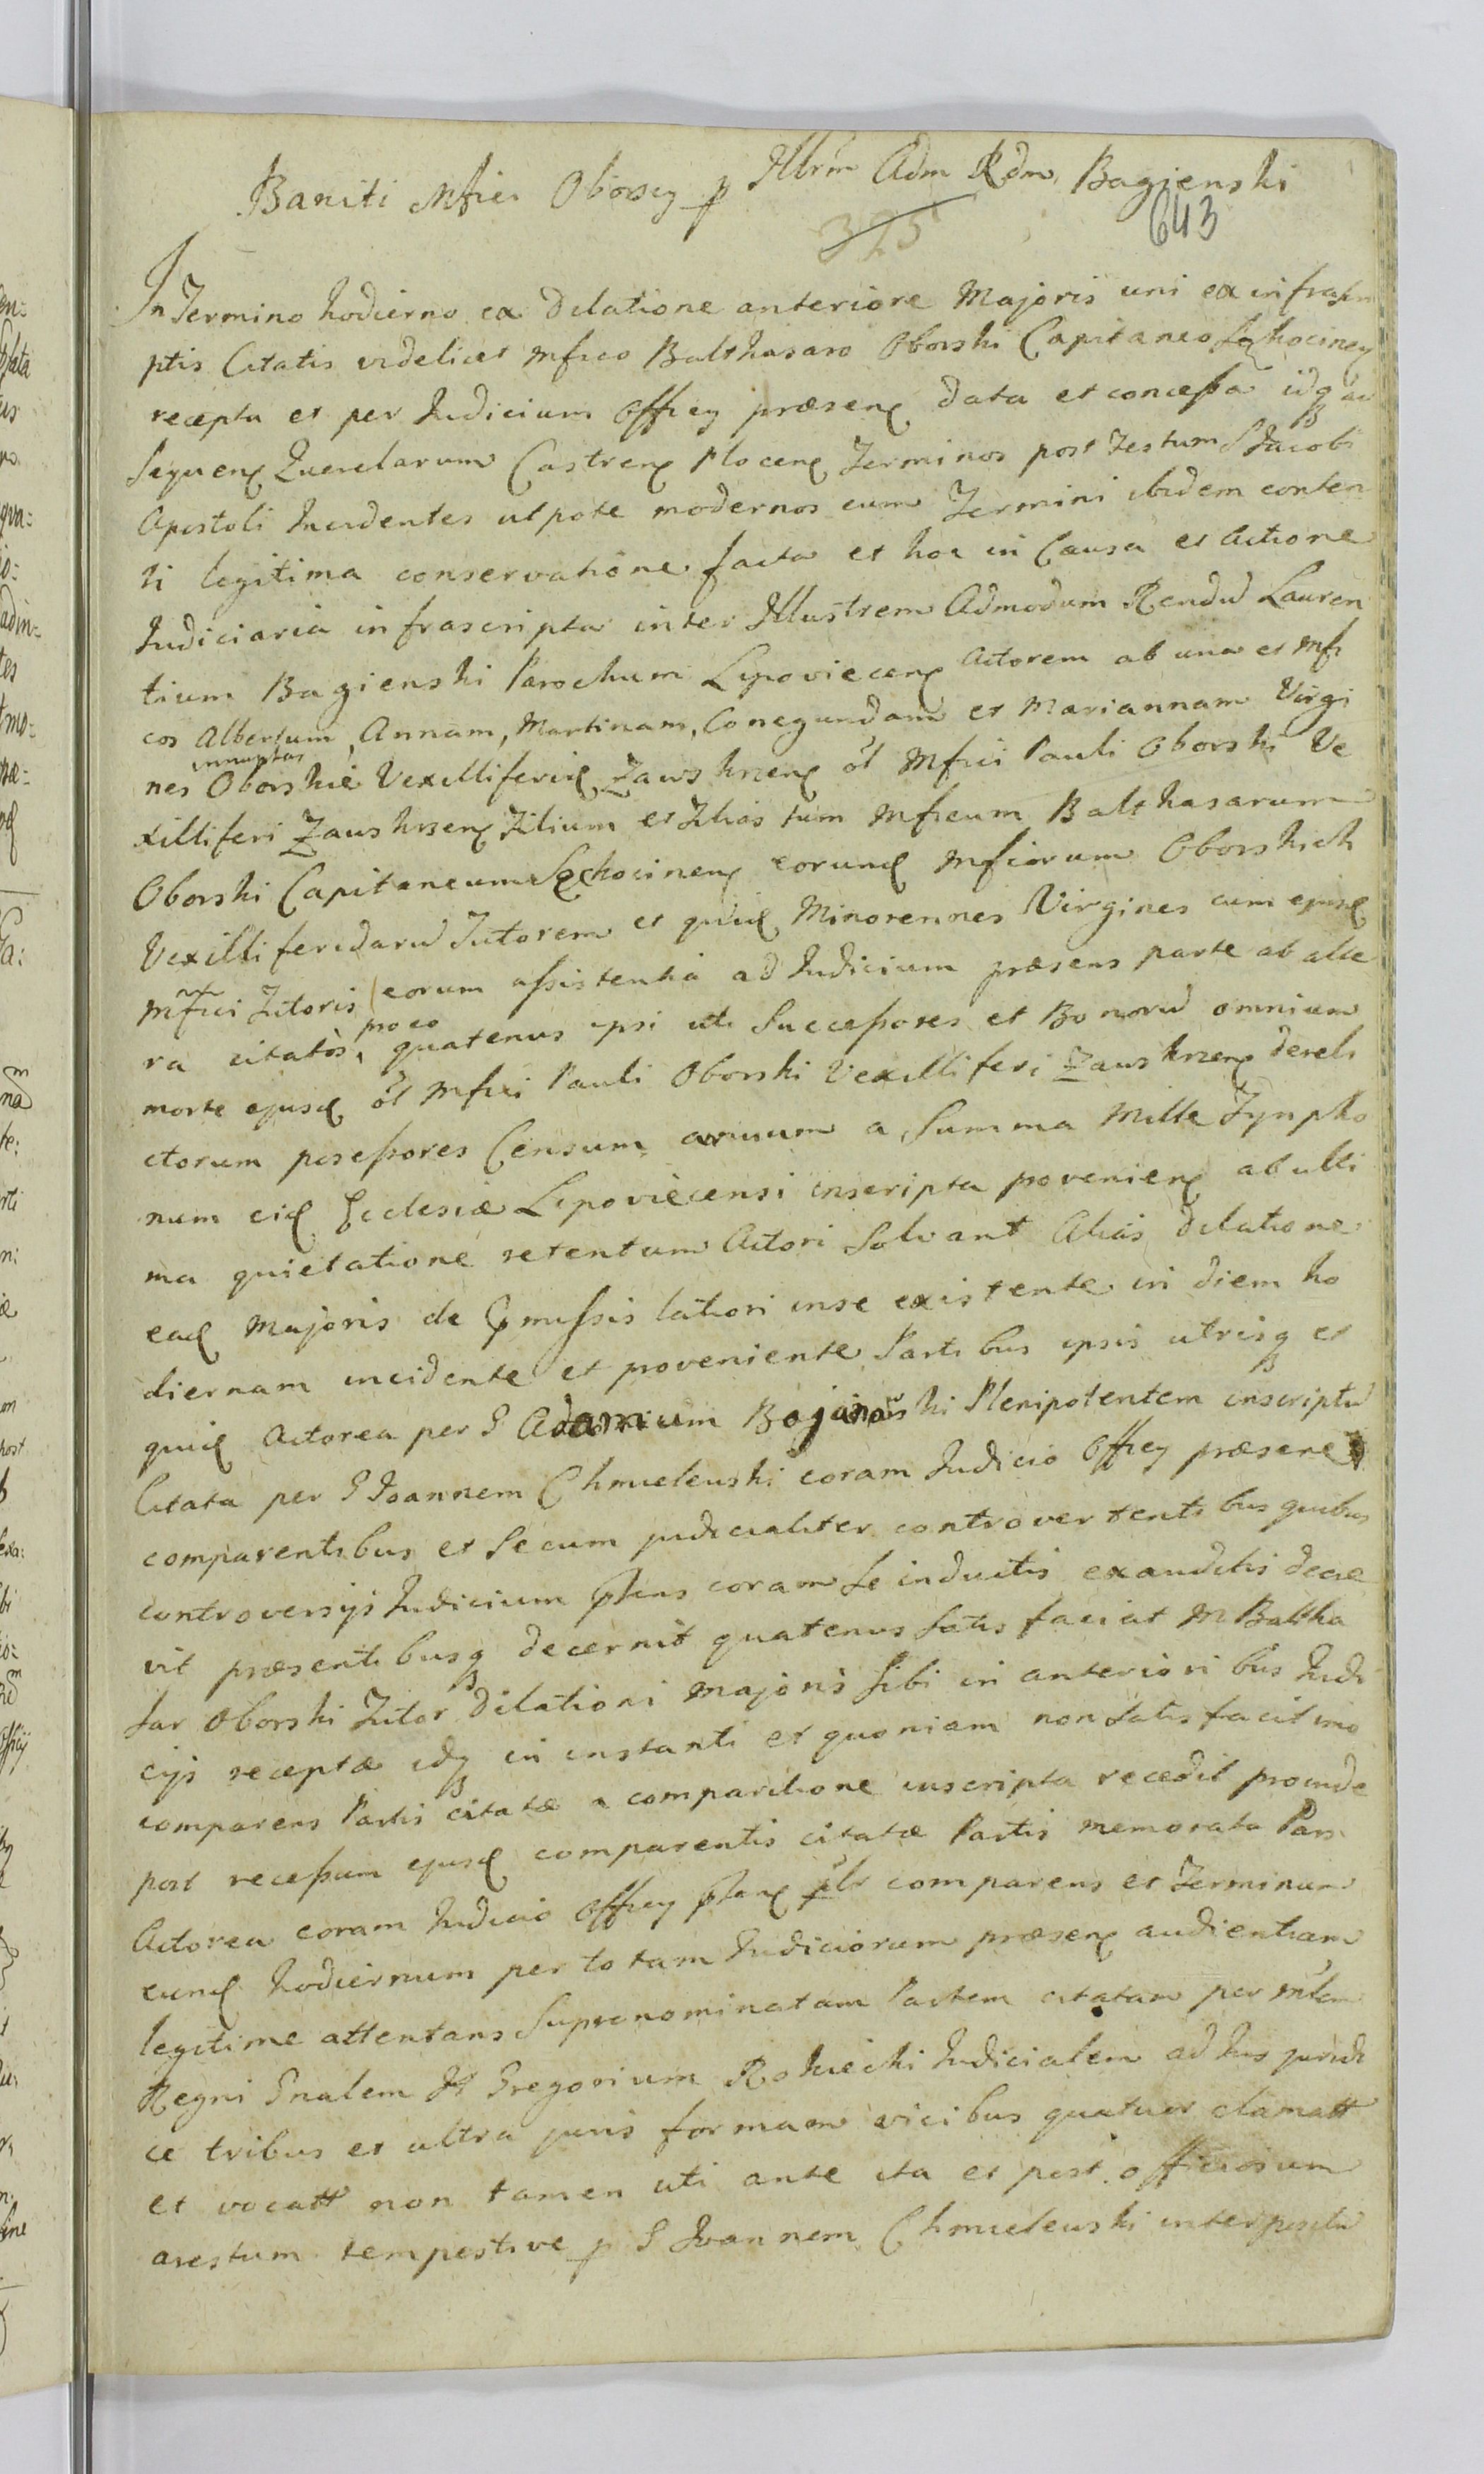 Baniti Mfici Oborscy p Illrm Adm Rdm Bagienski
325
643
In Termino hodierno ex dilatione anteriore Majoris uni ex infrascri
ptis Citatis videlicet Mfico Balthasaro Oborski Capitaneo Sochocinen
recepta et per Judicium Officy præsens data et concessa idq ad
sequens Querelarum Castrens Plocens Terminos post Festum S Jacobi
Apostoli Incidentes utpote modernos cum Termini ibidem conten
ti legitima conservatione facta et hoc in Causa et Actione
Judiciaria infrascripta inter Illustrem Admodum Rendum Lauren
tium Bagienski Parochum Lipoviecens Actorem ab una et Mfi
cos Albertum, Annam, Martinam, Conegundam et Mariannam Virgi
innuptas
nes Oborskie Vexilliferid Zawskrzens ol Mfici Pauli Oborski Ve
xilliferi Zauskrzens Filium et Filias tum Mficum Balthasarum
Oborski Capitaneum Sochocinens eorund Mficorum Oborskich
Vexilliferidarum Tutorem et quid Minorennes Virgines cum ejusd
Mfici Tutoris eorum assistentia ad Judicium præsens parte ab alte
pro eo
ra citatos, quatenus ipsi uti Successores et Bonorum omnium
morte ejusd ol Mfici Pauli Oborski Vexilliferi Zauskrzens dereli
ctorum possessores Censum annuum a Summa Mille Tynpho
num eid Ecclesiæ Lipoviecensi inscripta proveniens ab ulti
ma quietatione retentum Actori Solvant Alias dilatione
ead Majoris de præmissis latiori in se existente in diem ho
diernam incidente et proveniente Partibus ipsis utrisq et
quid Actorea per G Adamum Bojanowski Plenipotentem inscriptum
Citata per G Joannem Chmielewski coram Judicio Officy præsens
comparentibus et Secum judicialiter controvertentibus quibus
controversys Judicium præsens coram Se inductis exauditis decre
vit præsentibusq decernit quatenus Satis faciat M Baltha
sar Oborski Tutor Dilationi majoris sibi in anterioribus Judi
cys receptæ idq in instanti et quoniam non Satis facit imo
comparens Partis citatæ a comparitione inscripta recedit proinde
post recessum ejusd comparentis citatæ Partis memorata Pars
Actorea coram Judicio Officy præsens plr comparens et Terminum
eund hodiernum per totam Judiciorum præsens audientiam
legitime attentans Supranominatam Partem citatam per Mlem
Regni Gnalem H Gregorium Rokicki Judicialem ad Jus juridi
ce tribus et ultra juris formam vicibus quatuor clamatt
et vocatt non tamen uti ante ita et post officiosum
arestum tempestive p G Joannem Chmielewski interpositum